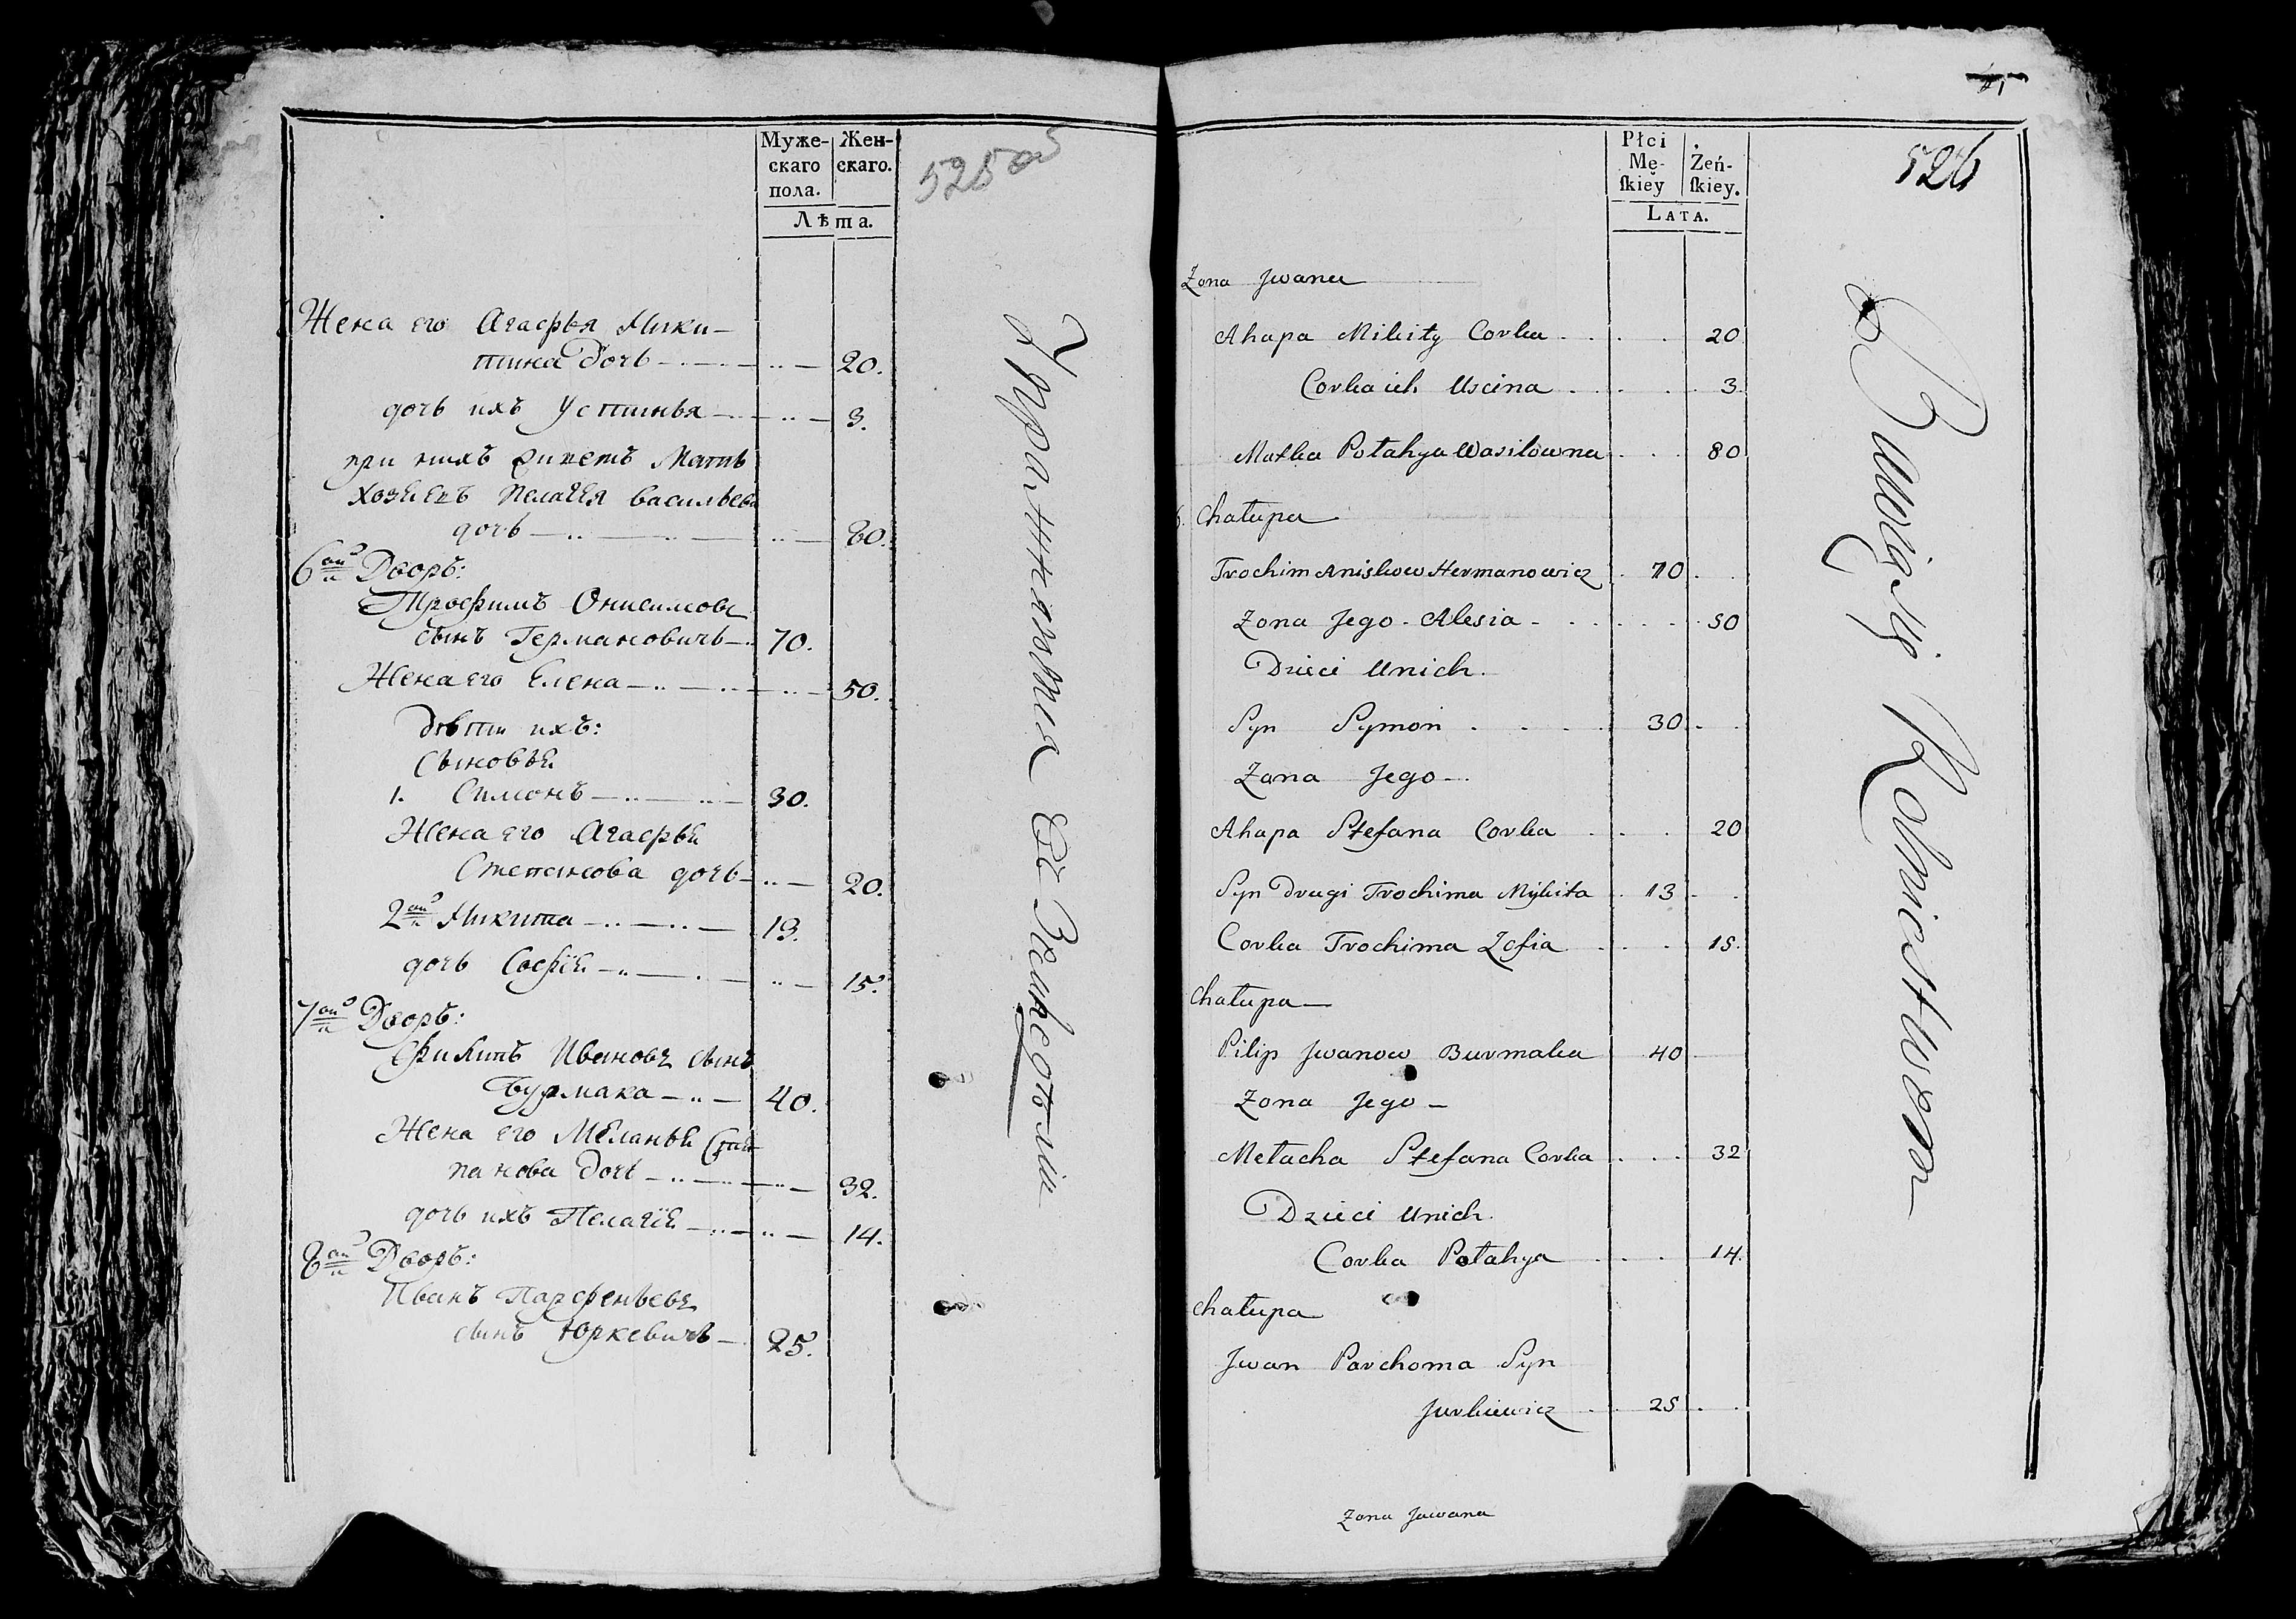 Муже-
скаго
пола.
Жен-
скаго.
Лѣта.
525 об
Жена его Агафья Мики-
тина дочь 20.
дочь ихъ Устинья 3.
при нихъ живетъ Мать
хозяевъ Пелагея васильева
дочь 80.
6ой Дворъ:
Трофимъ Онисимовъ
сынъ Германовичь 70.
Жена его Елена 50.
дѣти ихъ:
Сыновья
1. Симонъ 30.
Жена его Агафья
Степанова дочь 20.
2ой Микита 13.
дочь Софія 15.
7ой Дворъ:
Филипъ Ивановъ сынъ
Бурмака 40.
Жена его Меланья Сте-
панова дочь 32.
дочь ихъ Пелагія 14.
8ой Дворъ:
Иванъ Парфеньевъ
сынъ Юркевичь 25.
Płci
Mę-
ſkiey
Żeń-
ſkiey.
LATA.
526
Zona Jwana
Ahapa Mikity Corka 20
Corka ich Uscina 3.
Matka Połahya Wasilowna 80
6. Chałupa
Trochim Aniskow Hermanowicz 70
Zona Jego Alesia 50
Dzieci Unich
Syn Symon 30
Zona Jego
Ahapa Stefana Corka 20
Syn Drugi Trochima Mykita 13
Corka Trochima Zofia 15.
Chałupa
Pilip Jwanow Burmaka 40
Zona Jego
Metacha Stefana Corka 32
Dzieci Unich
Corka Połahya 14.
Chałupa
Jwan Parchoma Syn
Jurkiewicz 25
Zona Jawana